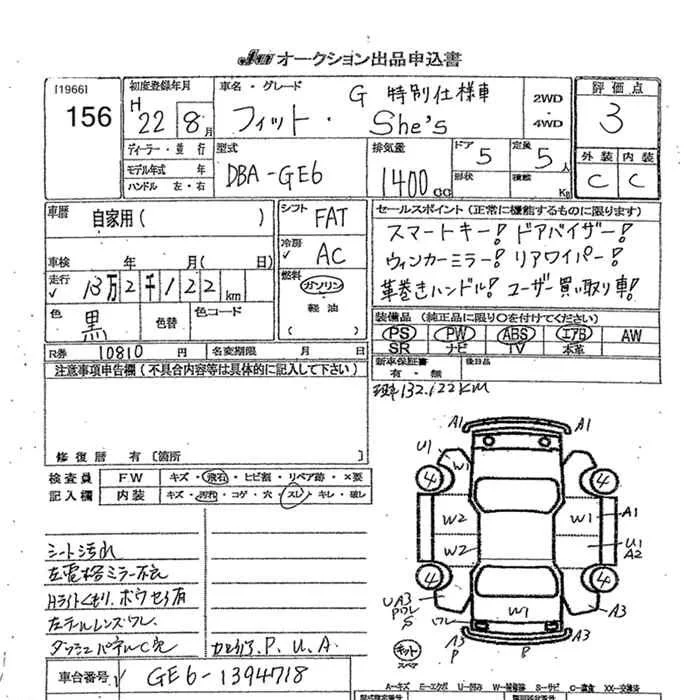 JAA オークション出品申込書
[1966]
156
初度登録年月
H 22 8月
車名・グレード
フィット・ G 特別仕様車 She's
2WD
4WD
評価点
3
ディーラー・並行
モデル年式 年
ハンドル 左・右
型式
DBA-GE6
排気量
1400 CC
ドア 5
定員 5人
形状
積載 Kg
外装 内装
C C
車歴 自家用( )
シフト FAT
セールスポイント(正常に機能するものに限ります)
スマートキー! ドアバイザー!
ウィンカーミラー! リアワイパー!
革巻きハンドル! ユーザー買い取り車!
車検 年 月( 日)
冷房 AC
走行 13万2千122km
燃料 ガソリン
軽油
( )
色 黒
色替
色コード
装備品(純正品に限り○を付けてください)
PS PW ABS エアB AW
SR ナビ TV 本革
R券 10810 円
名変期限 月 日
新車保証書 有・無
後日品
注意事項申告欄(不具合内容等は具体的に記入して下さい)
132.122KM
修復歴 有〔箇所 〕
検査員 FW キズ・飛石・ヒビ割・リペア跡・×要
記入欄 内装 キズ・汚れ・コゲ・穴・スレ・キレ・破レ
シート汚れ
左電格ミラー不良
Hライトくもり、ボウセイ有
左テールレンズワレ
P.U.A.
A1
A1
U1
W1
4
4
W2
W1
A1
W2
U1
A2
4
4
UA3
Pワレ
S
ワレ
W1
A3
A3
P
P
キット
スペア
車台番号 GE6-1394718
A=キズ E=エクボ U=凹み W=補修跡 S=サビ C=腐食 XX=交換済